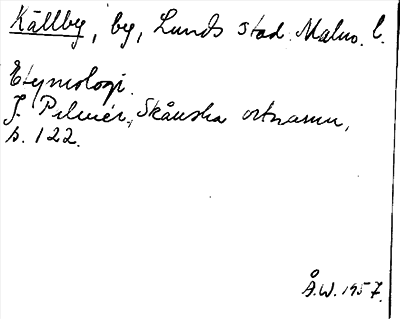 Källby, by, Lunds stad. Malm. l.
Etymologi.
J. Palmér, Skånska ortnamn,
s. 122.
Å.W. 1957.